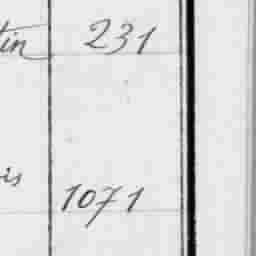 tin 231
is 1071